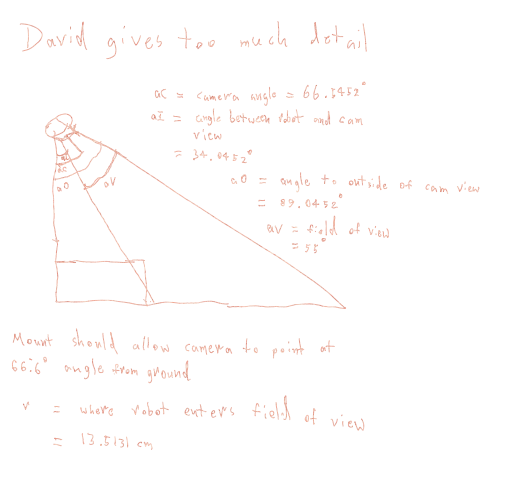 David gives too much detail
aC = camera angle = 66.5452°
aI = angle between robot and cam
view
= 34.0452°
aO = angle to outside of cam view
= 89.0452°
aV = field of view
= 55°
aC
aO
aV
Mount should allow camera to point at
66.6° angle from ground
r = where robot enters field of view
= 13.5131 cm